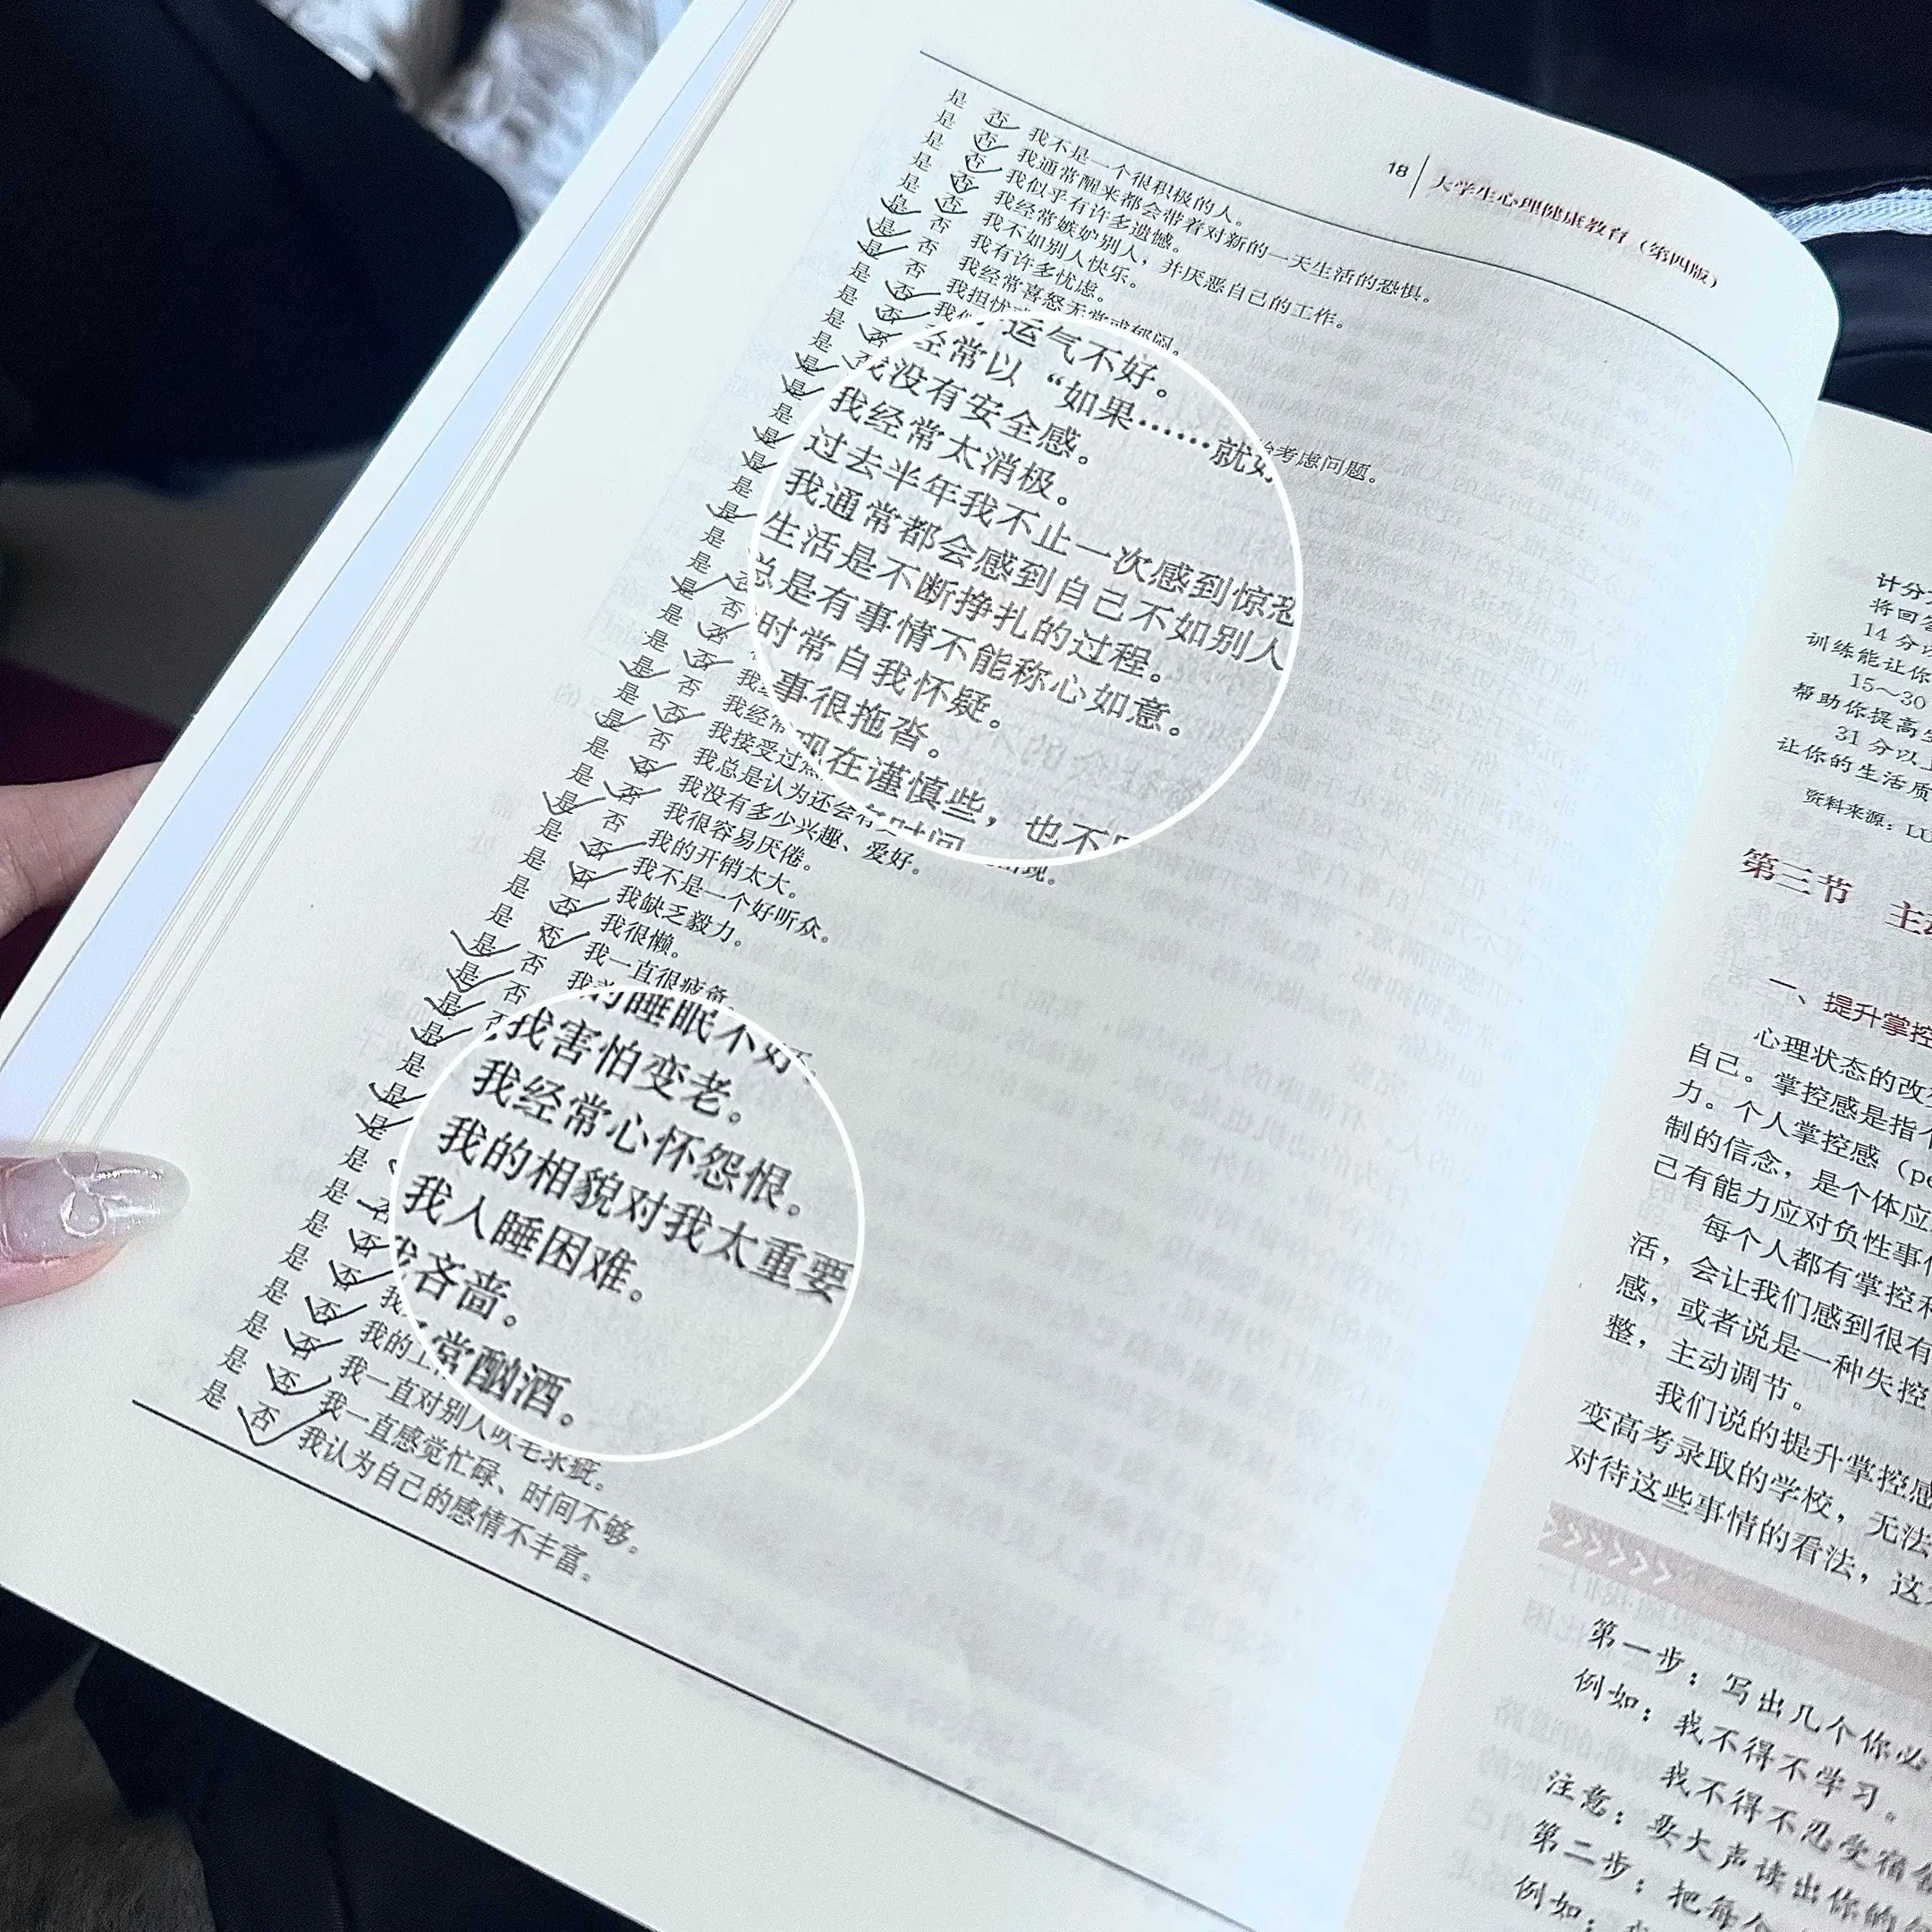 18 大学生心理健康教育(第四版)
是 否 我不是一个很积极的人。
是 否 我通常醒来都会带着对新的一天生活的恐惧。
是 否 我似乎有许多遗憾。
是 否 我经常嫉妒别人,并厌恶自己的工作。
是 否 我不如别人快乐。
是 否 我有许多忧虑。
是 否 我经常喜怒无常或郁闷。
是 否 我担忧
是 否 我 运气不好。
是 否 经常以“如果……就好 考虑问题。
是 否 我没有安全感。
是 我经常太消极。
是 过去半年我不止一次感到惊恐
是 我通常都会感到自己不如别人
是 生活是不断挣扎的过程。
是 总是有事情不能称心如意。
是 时常自我怀疑。
是 事很拖沓。
是 现在谨慎些,也不
是 时间
是 否
是 否 我
是 否 我经常
是 否 我接受过
是 否 我总是认为还会有 出现。
是 否 我没有多少兴趣、爱好。
是 否 我很容易厌倦。
是 否 我的开销太大。
是 否 我不是一个好听众。
是 否 我缺乏毅力。
是 否 我很懒。
是 否 我一直很疲惫
是 否 我的睡眠不好。
是 否 我害怕变老。
是 我经常心怀怨恨。
是 我的相貌对我太重要
是 我入睡困难。
是 我吝啬。
是 常酗酒。
是 否
是 否 我
是 否 我的
是 否 我一直对别人吹毛求疵。
是 否 我一直感觉忙碌、时间不够。
是 否 我认为自己的感情不丰富。
计分
将回答
14 分
训练能让你
15~30
帮助你提高
31 分以上
让你的生活质
资料来源:LU
第三节 主动
一、提升掌控
心理状态的改变
自己。掌控感是指个
力。个人掌控感(pe
制的信念,是个体应
己有能力应对负性事件
每个人都有掌控
活,会让我们感到很有
感,或者说是一种失控
整,主动调节。
我们说的提升掌控感
变高考录取的学校,无法
对待这些事情的看法,这
第一步:写出几个你必
例如:我不得不学习。
我不得不忍受宿舍
注意:要大声读出你的
第二步:把每个
例如: